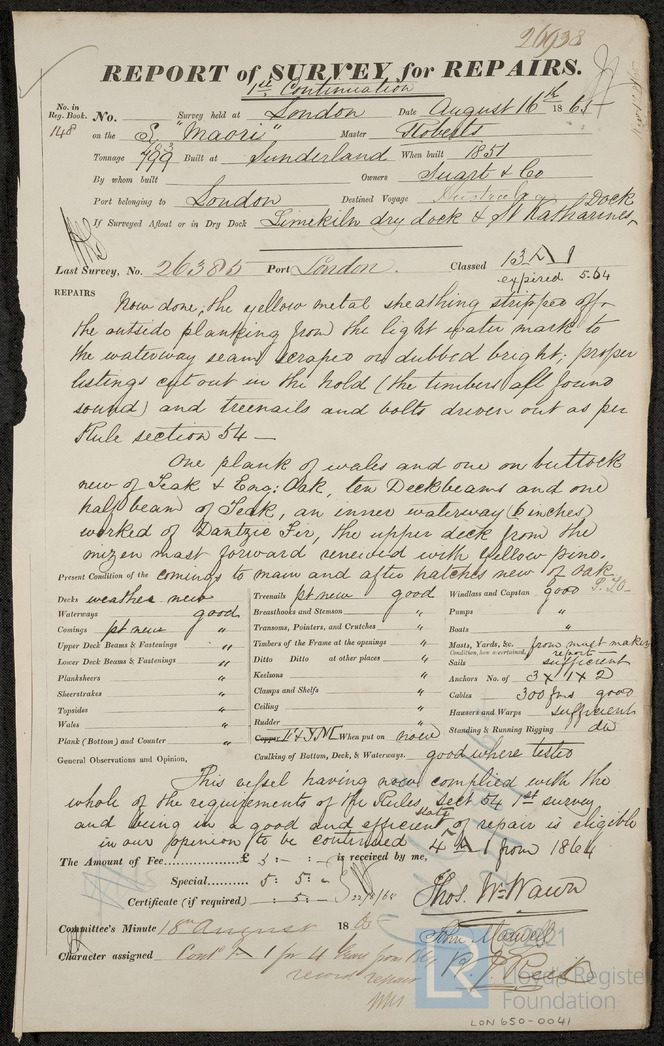 26938
REPORT of SURVEY for REPAIRS.
1st Continuation
No. in Reg. Book. No. Survey held at London Date August 16th 1865
148 on the S. "Maori" Master Roberts
Tonnage 799 Built at Sunderland When built 1851
By whom built Owners Stuart & Co
Port belonging to London Destined Voyage Australia
If Surveyed Afloat or in Dry Dock Limekiln dry dock & St Katharines Dock
Last Survey, No. 26385 Port London. Classed 13 A 1
expired 5.64
REPAIRS Now done, the yellow metal sheathing stripped off
the outside planking from the light water mark to
the waterway seam scraped or dubbed bright; proper
listings cut out in the hold (the timbers all found
sound) and treenails and bolts driven out as per
Rule section 54 —
One plank of wales and one on buttock
new of Teak & Eng: Oak, ten Deckbeams and one
half beam of Teak, an inner waterway (6 inches)
worked of Dantzic Fir, the upper deck from the
mizen mast forward renewed with yellow pine.
Present Condition of the comings to main and after hatches new of Oak P.T.O.
Decks weather new
Waterways good
Comings pt new "
Upper Deck Beams & Fastenings "
Lower Deck Beams & Fastenings "
Planksheers "
Sheerstrakes "
Topsides "
Wales "
Plank (Bottom) and Counter "
Treenails pt new good
Breasthooks and Stemson "
Transoms, Pointers, and Crutches "
Timbers of the Frame at the openings "
Ditto Ditto at other places "
Keelsons "
Clamps and Shelfs "
Ceiling "
Rudder "
Copper F & YM When put on now
Caulking of Bottom, Deck, & Waterways. good where tested
Windlass and Capstan good
Pumps "
Boats "
Masts, Yards, &c. from mast makers report
Condition, how ascertained,
Sails sufficient
Anchors No. of 3 x 1 x 2
Cables 300 fms good
Hawsers and Warps sufficient
Standing & Running Rigging do
General Observations and Opinion,
This vessel having now complied with the
whole of the requirements of the Rules, Sect 54 1st survey
and being in a good and efficient state of repair is eligible
in our opinion to be continued 4 A 1 from 1864
The Amount of Fee £ 3 : - : - is received by me,
Special 5 : 5 : -
Certificate (if required) : 5 : - 22/8/65
Thos. Wm Wawn
Committee's Minute 18th August 1865
John Maxwell
Character assigned Contd A 1 for 4 Years from 1864
record repairs
© 2021
LR Lloyd's Register
Foundation
LON 650-0041